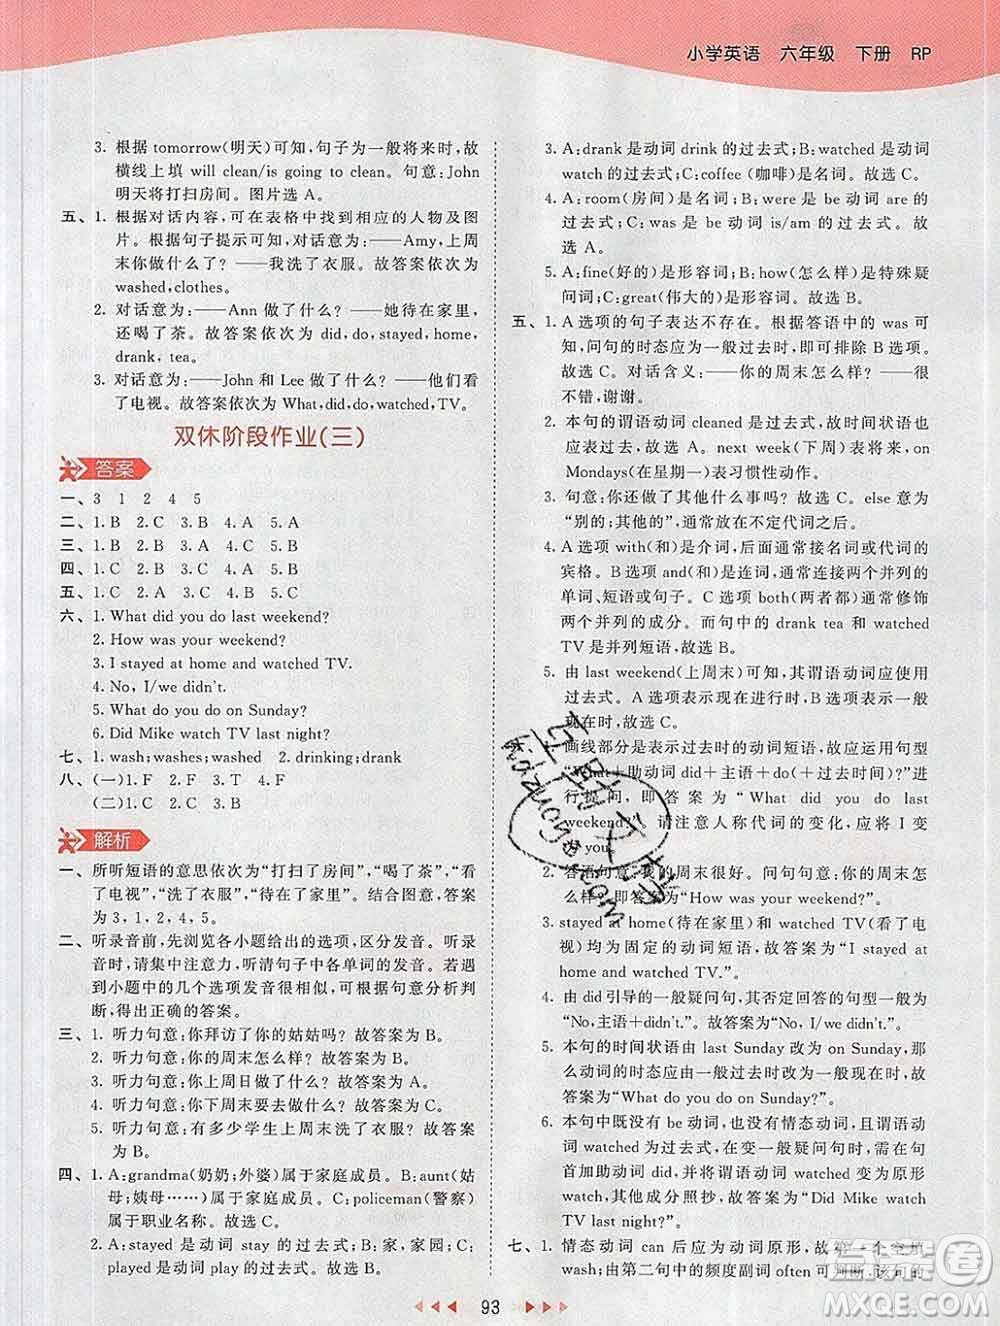 小学英语 六年级 下册 RP
3. 根据 tomorrow(明天)可知,句子为一般将来时,故
横线上填 will clean/is going to clean。句意:John
明天将打扫房间。图片选 A。
五、1. 根据对话内容,可在表格中找到相应的人物及图
片。根据句子提示可知,对话意为:——Amy,上周
末你做什么了?——我洗了衣服。故答案依次为
washed,clothes。
2. 对话意为:——Ann 做了什么?——她待在家里,
还喝了茶。故答案依次为 did,do,stayed,home,
drank, tea。
3. 对话意为:——John 和 Lee 做了什么?——他们看
了电视。故答案依次为 What,did,do,watched,TV。
双休阶段作业(三)
答案
一、3 1 2 4 5
二、1. B 2. C 3. B 4. A 5. A
三、1. B 2. B 3. A 4. C 5. B
四、1. C 2. B 3. C 4. A 5. B
五、1. C 2. A 3. C 4. B 5. C
六、1. What did you do last weekend?
2. How was your weekend?
3. I stayed at home and watched TV.
4. No, I/we didn't.
5. What do you do on Sunday?
6. Did Mike watch TV last night?
七、1. wash;washes;washed 2. drinking;drank
八、(一)1. F 2. F 3. T 4. F
(二)1. C 2. A 3. C 4. B
解析
一、所听短语的意思依次为“打扫了房间”,“喝了茶”,“看
了电视”,“洗了衣服”,“待在了家里”。结合图意,答案
为 3, 1, 2, 4, 5。
二、听录音前,先浏览各小题给出的选项,区分发音。听录
音时,请集中注意力,听清句子中各单词的发音。若遇
到小题中的几个选项发音很相似,可根据句意分析判
断,得出正确的答案。
三、1. 听力句意:你拜访了你的姑姑吗?故答案为 B。
2. 听力句意:你的周末怎么样?故答案为 B。
3. 听力句意:你上周日做了什么?故答案为 A。
4. 听力句意:你下周末要去做什么?故答案为 C。
5. 听力句意:有多少学生上周末洗了衣服?故答案
为 B。
四、1. A:grandma(奶奶;外婆)属于家庭成员。B:aunt(姑
母;姨母……)属于家庭成员。C:policeman(警察)
属于职业名称。故选 C。
2. A:stayed 是动词 stay 的过去式;B:家,家园;C:
played 是动词 play 的过去式。故选 B。
3. A:drank 是动词 drink 的过去式;B:watched 是动词
watch 的过去式;C:coffee (咖啡)是名词。故选 C。
4. A:room(房间)是名词;B:were 是 be 动词 are 的
过去式;C:was 是 be 动词 is/am 的过去式。故
选 A。
5. A:fine(好的)是形容词;B:how(怎么样)是特殊疑
问词;C:great(伟大的)是形容词。故选 B。
五、1. A 选项的句子表达不存在。根据答语中的 was 可
知,问句的时态应为一般过去时,即可排除 B 选项。
故选 C。对话含义:——你的周末怎么样?——很
不错,谢谢。
2. 本句的谓语动词 cleaned 是过去式,故时间状语也
应表过去,故选 A。next week(下周)表将来,on
Mondays(在星期一)表习惯性动作。
3. 句意:你还做了其他什么事吗?故选 C。else 意为
“别的;其他的”,通常放在不定代词之后。
4. A 选项 with(和)是介词,后面通常接名词或代词的
宾格。B 选项 and(和)是连词,通常连接两个并列的
单词、短语或句子。C 选项 both(两者都)通常修饰
两个并列的成分。而句中的 drank tea 和 watched
TV 是并列短语,故选 B。
5. 由 last weekend(上周末)可知,其谓语动词应使用
过去式。A 选项表示现在进行时,B 选项表示一般
现在时,故选 C。
画线部分是表示过去时的动词短语,故应运用句型
“What+助动词 did+主语+do(+过去时间)?”进
行提问,即答案为“What did you do last
weekend?”。请注意人称代词的变化,应将 I 变
为 you。
2. 答语句意:我的周末很好。问句句意:你的周末怎
么样?即答案为“How was your weekend?”。
3. stayed at home(待在家里)和 watched TV(看了电
视)均为固定的动词短语,故答案为“I stayed at
home and watched TV.”。
4. 由 did 引导的一般疑问句,其否定回答的句型一般为
“No,主语+didn't.”。故答案为“No, I/we didn't.”。
5. 本句的时间状语由 last Sunday 改为 on Sunday,那
么动词的时态应由一般过去时改为一般现在时。故
答案为“What do you do on Sunday?”。
6. 本句中既没有 be 动词,也没有情态动词,且谓语动
词 watched 为过去式,在变一般疑问句时,应在句
首添加助动词 did,并将谓语动词 watched 变为原形
watch,其他成分照抄,故答案为“Did Mike watch
TV last night?”。
七、1. 情态动词 can 后应为动词原形,故第一个空填
wash;由第二句中的频度副词 often 可判断,该句的
93
答案卷
MXQE.COM